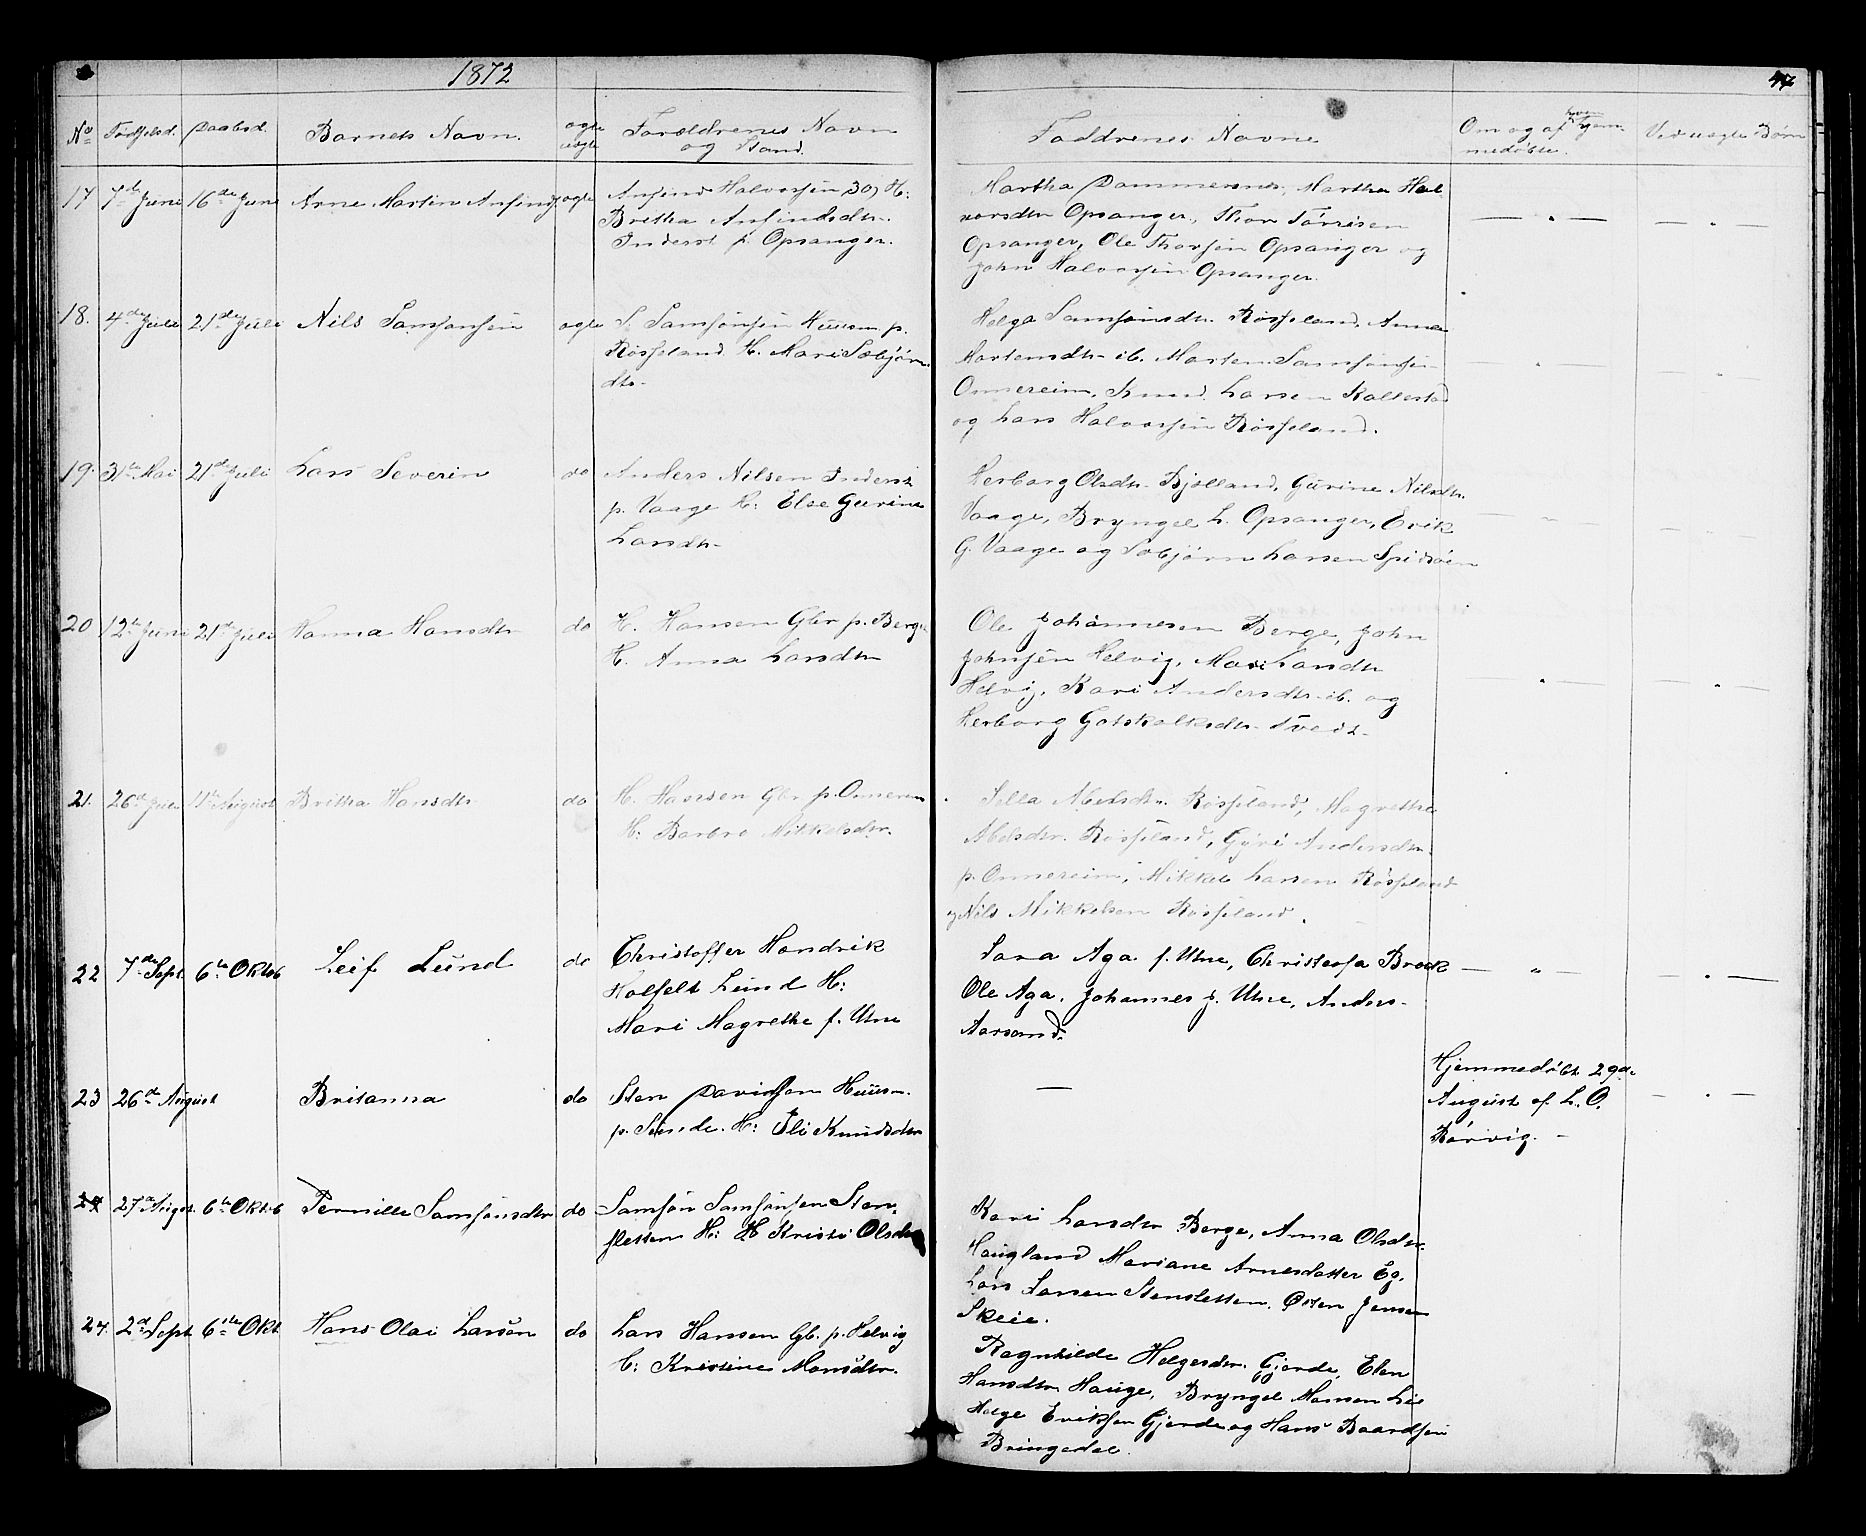 1872
47
No
Fødselsd.
Daabsd.
Barnets Navn.
ægte
uægte
Forældrenes Navn
og Stand.
Faddrenes Navne
Om og af hvem hjem-
medøbte.
Ved uægte Børn
17
7de Juni
16de Juni
Arne Martin Anfinds.
ægte
Anfind Halvorsen 30) H:
Britha Anfindsdtr.
Inderst p. Opsanger.
Martha Dammesnes, Martha Hal-
vorsdtr Opsanger, Thor Tørrisen
Opsanger, Ole Thorsen Opsanger og
John Halvorsen Opsanger.
18.
4de Juli
21de Juli
Nils Samsonsen
ægte
S. Samsonsen Huusm. p.
Røsseland H. Mari Sæbjørns-
dtr-
Helga Samsonsdtr. Røsseland, Anna
Mortensdtr ib. Morten Samsonsen
Omereim, Knud Larsen Kallestad
og Lars Halvorsen Røsseland.
19.
31te Mai
21de Juli
Lars Severin
do
Anders Nilsen Inderst
p. Vaage H: Else Gurine
Larsdtr-
Herborg Olsdtr. Bjelland, Gurine Nilsdtr.
Vaage, Bryngel L. Opsanger, Erik
G. Vaage og Sæbjørn Larsen Spidsøen
20
12te Juni
21de Juli
Hanna Hansdtr
do
H. Hansen Gbr p. Berge
H. Anna Larsdtr
Ole Johannesen Berge, John
Johnsen Helvig, Mari Larsdtr
Helvig, Kari Andersdtr ib. og
Herborg Gotskalksdtr. Tveit-
21.
26de Juli
11te August
Britha Hansdtr
do
H. Hansen Gbr p. Omereim
H: Barbro Mikkelsdtr.
Sella Abelsdtr. Røsseland, Magrethe
Abelsdtr. Røsseland, Gyri Andersdtr.
p. Omereim, Mikkel Larsen Røsseland
og Nils Mikkelsen Røsseland.
22
7de Sept
6te Oktob
Leif Lund
do
Christoffer Hendrik
Holfelt Lund H:
Mari Magrethe f. Utne
Sara Aga f. Utne, Christense Brock
Ole Aga, Johannes J. Utne, Anders
Aarsand.
23
26de August
Britanna
do
Sten Davidsen Huusm.
p. Sunde. H: Eli Knudsdtr
—
Hjemmedøbt 29de
August af L. O.
Rørvig. -
24
27de August.
6te Oktob
Pernille Samsonsdtr
do
Samson Samsonsen Sten-
sletten H: H Kristi Olsdtr
Kari Larsdtr Berge, Anna Olsdtr.
Haugland Mariane Arnesdatter Eg.
Lars Larsen Stensletten. Østen Jensen
Skeie.
24.
2de Sept
6te Okt.
Hans Olai Larsen
do
Lars Hansen Gb. p. Helvig
H: Kristine Monsdtr.
Ragnhilde Helgesdtr. Gjerde, Elen
Hansdtr Hauge, Bryngel Monsen Lie
Helge Eriksen Gjerde og Hans Baardsen
Bringedal.